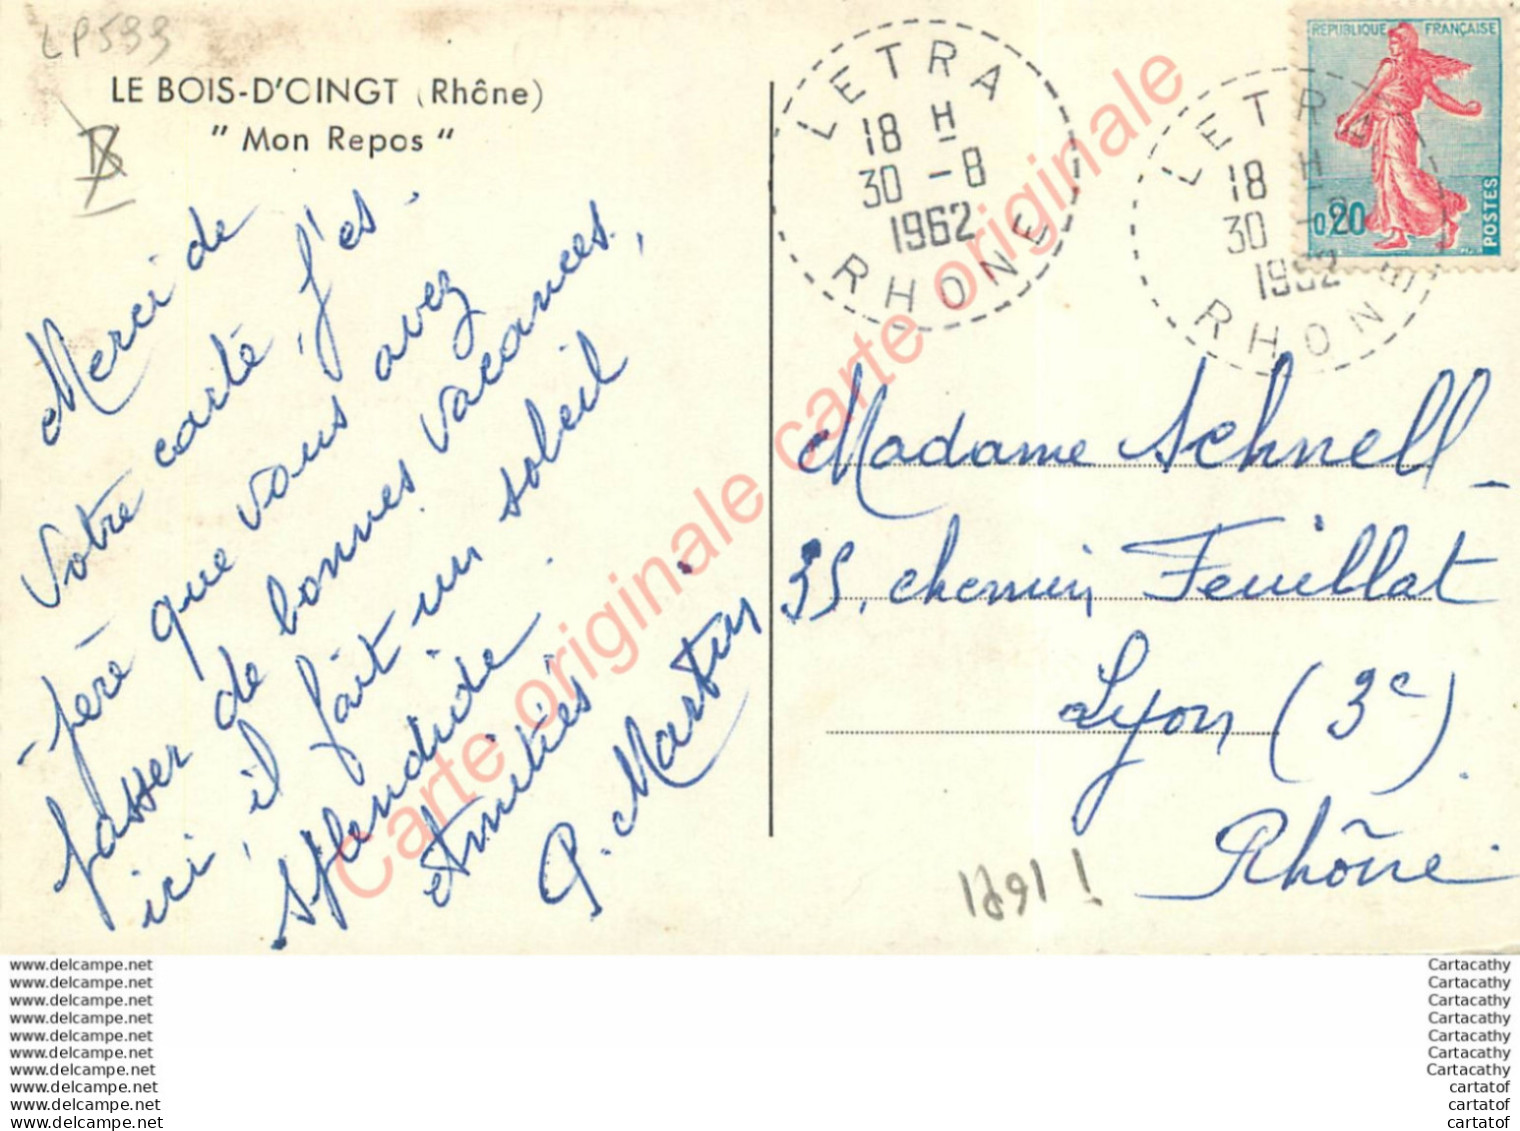 LP533
LE BOIS-D'OINGT (Rhône)
" Mon Repos "
Merci de
votre carte, j'es-
-père que vous avez
passer de bonnes vacances,
ici, il fait un soleil
splendide.
Amitiés
P. Martin
LETRA
18 H
30 -8
1962
RHONE
LETRA
18 H
30 -8
1962
RHONE
REPUBLIQUE FRANÇAISE
0,20
POSTES
Madame Schnell-
35, chemin Feuillat
Lyon (3e)
Rhône
Carte originale carte originale carte originale
www.delcampe.net
www.delcampe.net
www.delcampe.net
www.delcampe.net
www.delcampe.net
www.delcampe.net
www.delcampe.net
www.delcampe.net
www.delcampe.net
www.delcampe.net
Cartacathy
Cartacathy
Cartacathy
Cartacathy
Cartacathy
Cartacathy
Cartacathy
cartatof
cartatof
cartatof